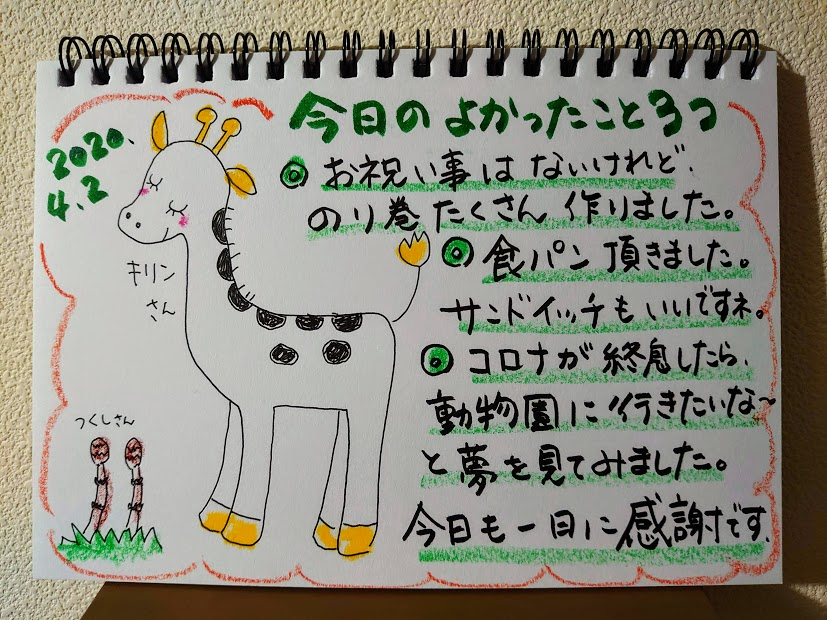 今日のよかったこと3つ
2020.
4.2
◎お祝い事はないけれど、
のり巻たくさん作りました。
◎食パン頂きました。
サンドイッチもいいですネ。
◎コロナが終息したら、
動物園に行きたいな〜
と夢を見てみました。
今日も一日に感謝です。
キリン
さん
つくしさん